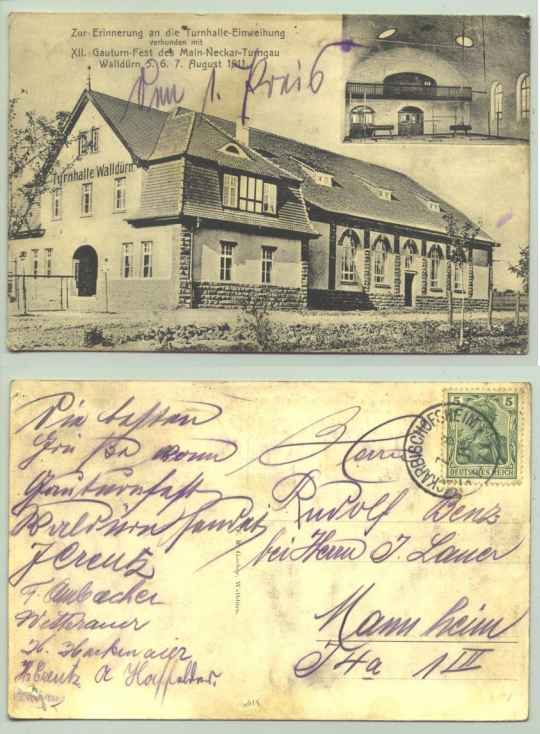 Zur Erinnerung an die Turnhalle-Einweihung
verbunden mit
XII. Gauturn-Fest des Main-Neckar-Turngau
Walldürn 5. 6. 7. August 1911.
Den 1. Preis
Turnhalle Walldürn
Die besten
Grüße vom
Gauturnfest
Walldürn sendet
J Creutz
F. Ambacher
Wetterauer
H. Hackenmaier
H Creutz A
5 5
DEUTSCHES REICH
Herrn
Rudolf Benz
bei Herrn J. Lauer
Mannheim
J4a 1 III